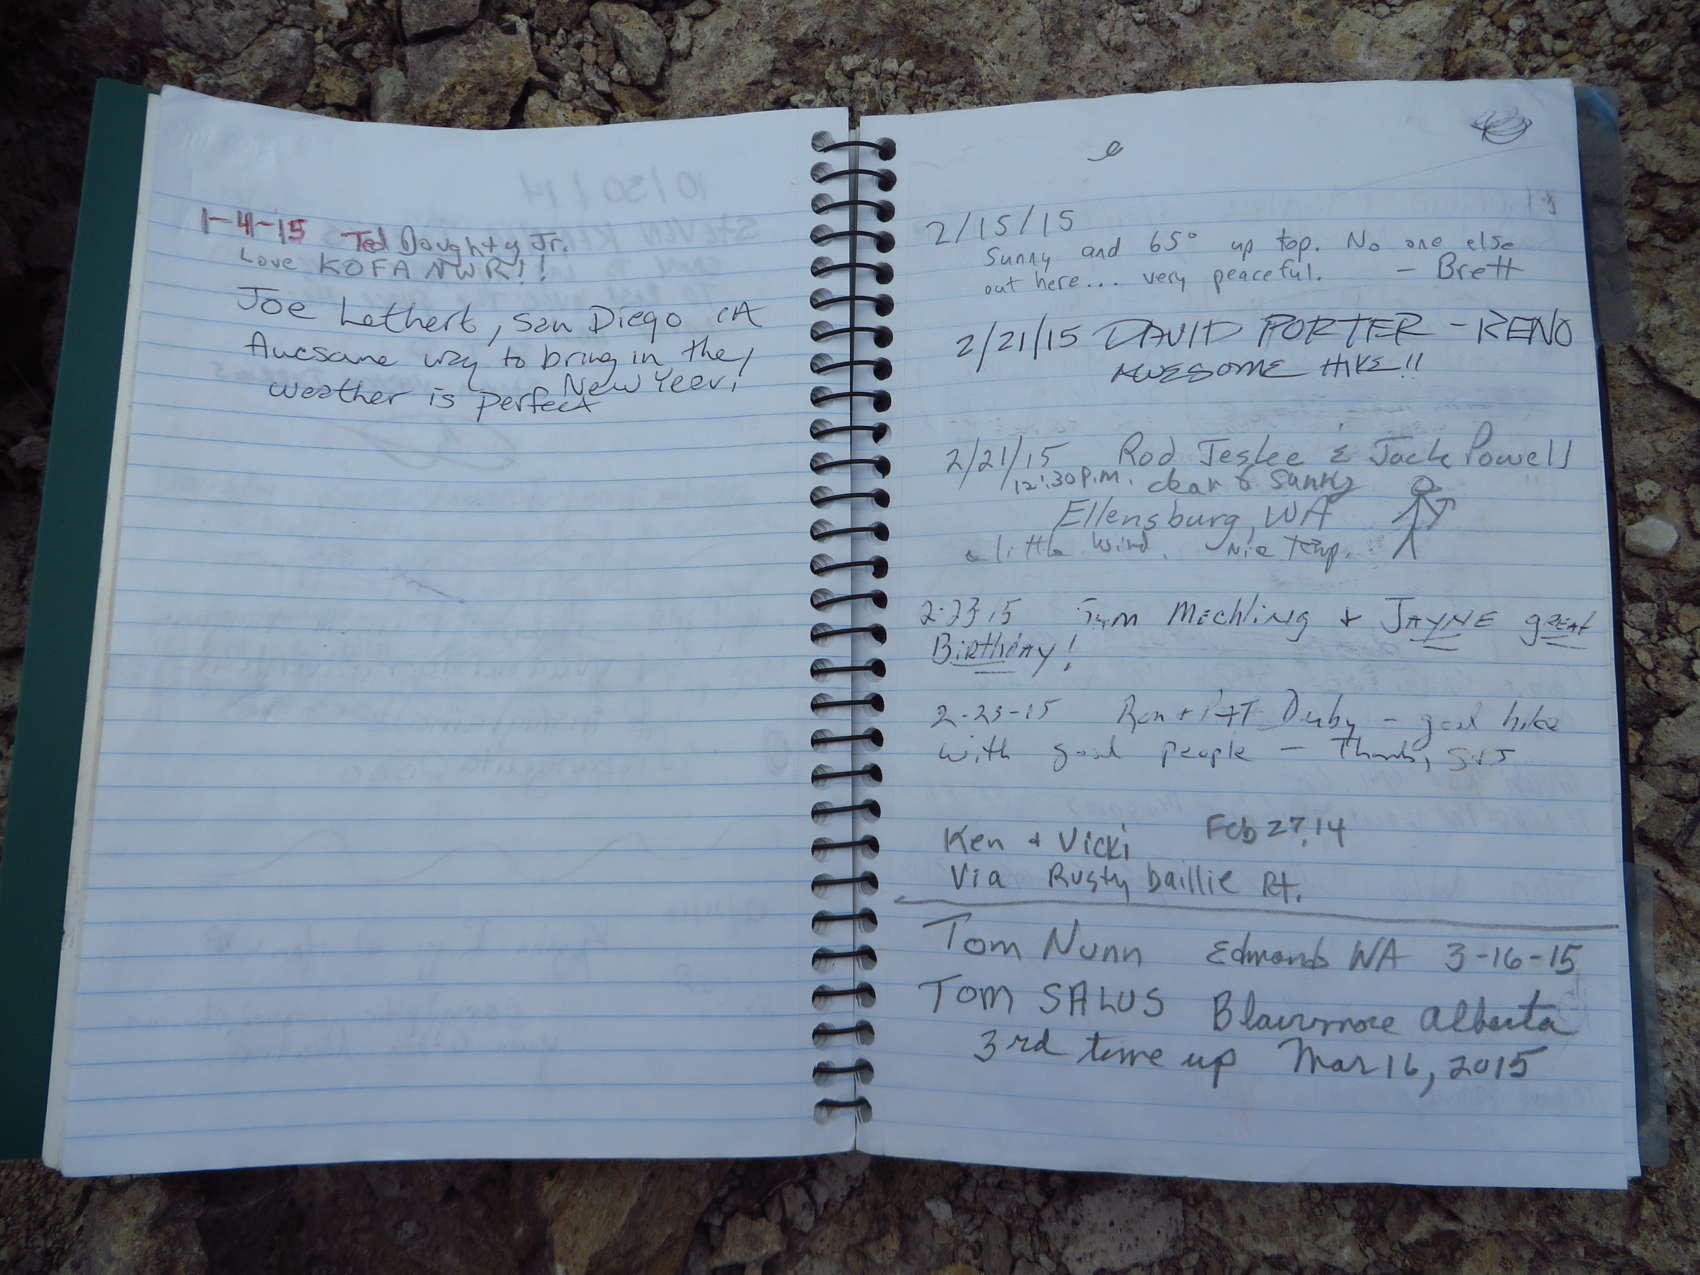 1-4-15 Ted Doughty Jr.
Love KOFA NWR!!
Joe Lethert, San Diego CA
Awesome way to bring in the
New Year!
weather is perfect
2/15/15
Sunny and 65° up top. No one else
out here... very peaceful. - Brett
2/21/15 DAVID PORTER - RENO
AWESOME HIKE!!
2/21/15 Rod & Jack Powell
12:30 P.M. clear & Sunny
Ellensburg, WA
a little wind. Nice Temp.
2-23 15 Mechling & JAYNE great
Birthday!
2-23-15 Ron + PAT - good hike
with good people - Thanks,
Ken & Vicki Feb 27, 14
Via Rusty baillie Rt.
Tom Nunn Edmonds WA 3-16-15
Tom SALUS Blairmore Alberta
3rd time up Mar 16, 2015